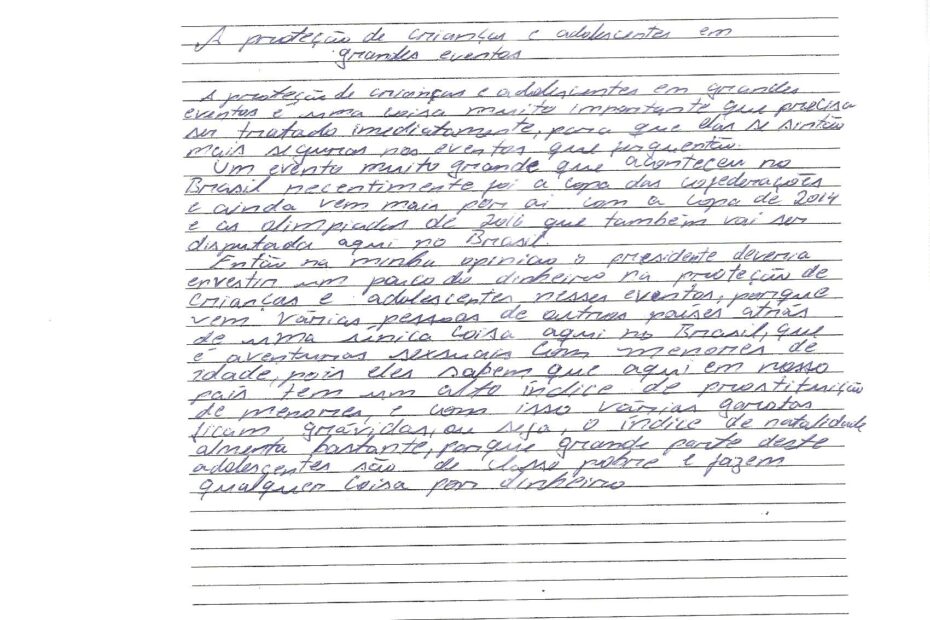 A proteção de crianças e adolescentes em
grandes eventos
A proteção de crianças e adolescentes em grandes
eventos é uma coisa muito importante que precisa
ser tratado imediatamente, para que elas se sintão
mais seguras nos eventos que frequentão.
Um evento muito grande que aconteceu no
Brasil recentimente foi a copa das cofederações
e ainda vem mais por ai com a copa de 2014
e as olimpiadas de 2016 que também vai ser
disputada aqui no Brasil.
Então na minha opinião o presidente deveria
envestir um pouco do dinheiro na proteção de
crianças e adolescentes nesses eventos, porque
vem várias pessoas de outros paises atrás
de uma única coisa aqui no Brasil, que
é aventuras sexuais com menores de
idade, pois eles sabem que aqui em nosso
país tem um alto índice de prostituição
de menores, e com isso várias garotas
ficam grávidas, ou seja, o índice de natalidade
almenta bastante, porque grande parte deste
adolescentes são de classe pobre e fazem
qualquer coisa por dinheiro